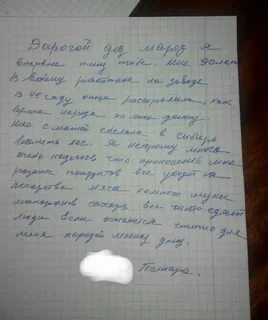 Дорогой дед мароз я
впервые пишу тибе. Мне 90 лет
В войну работала на заводе
В 45 году отца растреляли, как
врага народа но мне данасу
Нас с мамой сослали в Сибирь
валить лес. Я непрошу много
очень надеюсь что принесёшь мне
разных продуктов все уходит на
лекарства мяса немного муки
макаронов сахара все чи кто едят
люди Если останется чтото для
меня передай маему дому.
Тамара.